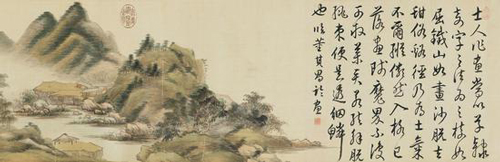 士人作畫當以草隸
奇字之法為之樹如
屈鐵山如畫沙脫去
甜俗蹊徑乃為士氣
不爾縱儼然入格已
落畫師魔界不復
可救藥矣若能解脫
繩束便是透網鱗
也 董其昌